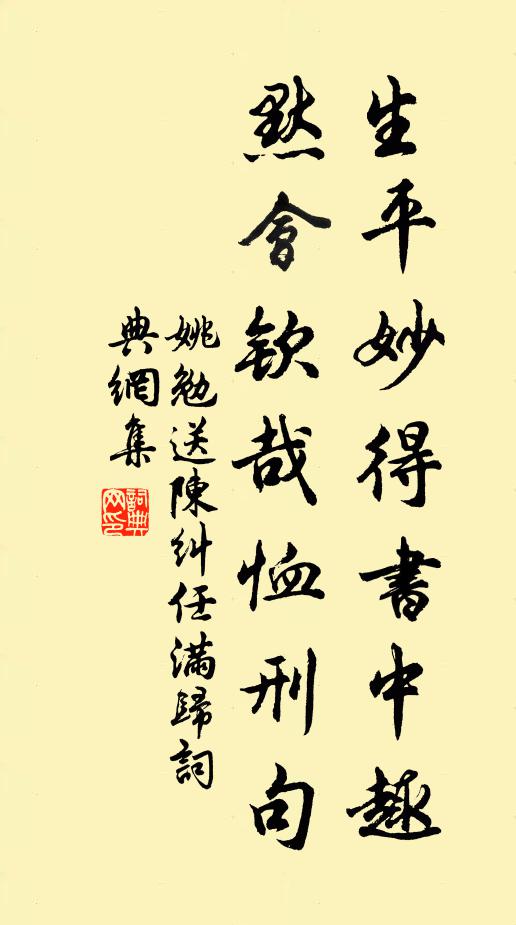 生平妙得書中趣
默會欽哉恤刑句
姚勉送陳糾任滿歸詞
典網集
詞典网印